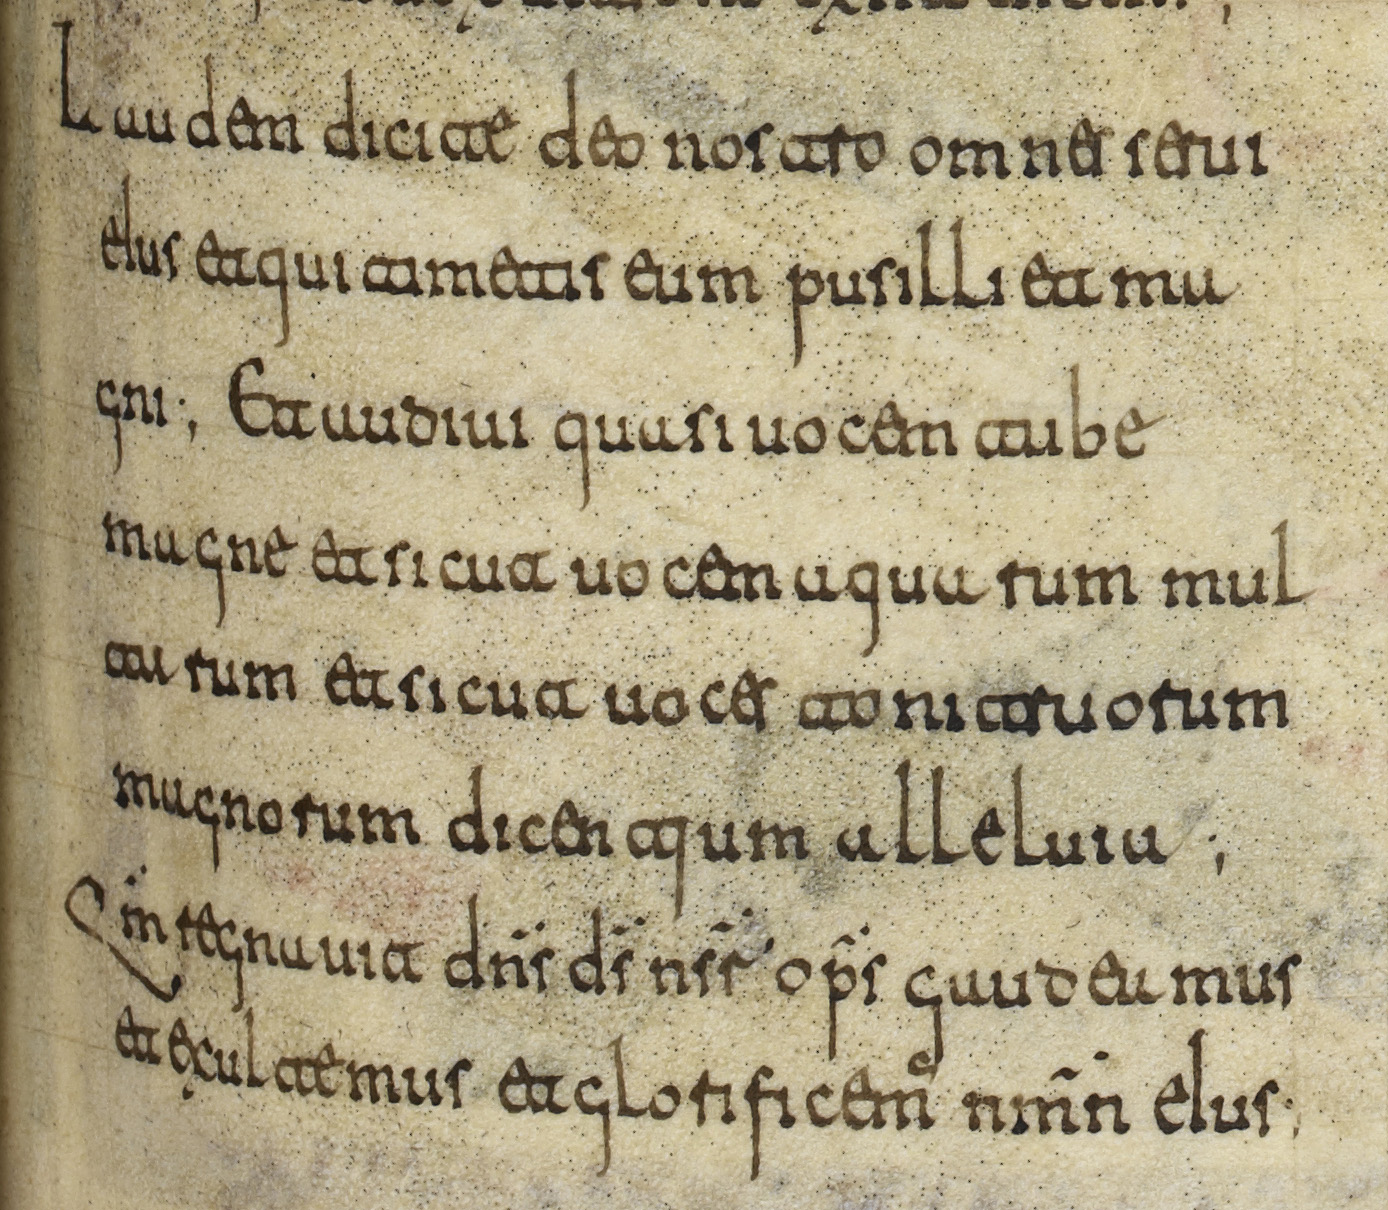 Laudem dicite deo nostro omnes serui
eius et qui timetis eum pusilli et ma
gni·, Et audiui quasi uocem tube
magne et sicut uocem aquarum mul
tarum et sicut uoces tonitruorum
magnorum dicentium alleluia ·,
Qm̄ regnauit dn̄s ds̄ nsr̄ op̄s gaudeamus
et exultemus et glorificem᾿ nm̄n eius·,